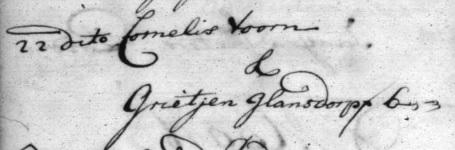 22 dito Cornelis Voorn
&
Grietjen Glansdorpp 6--